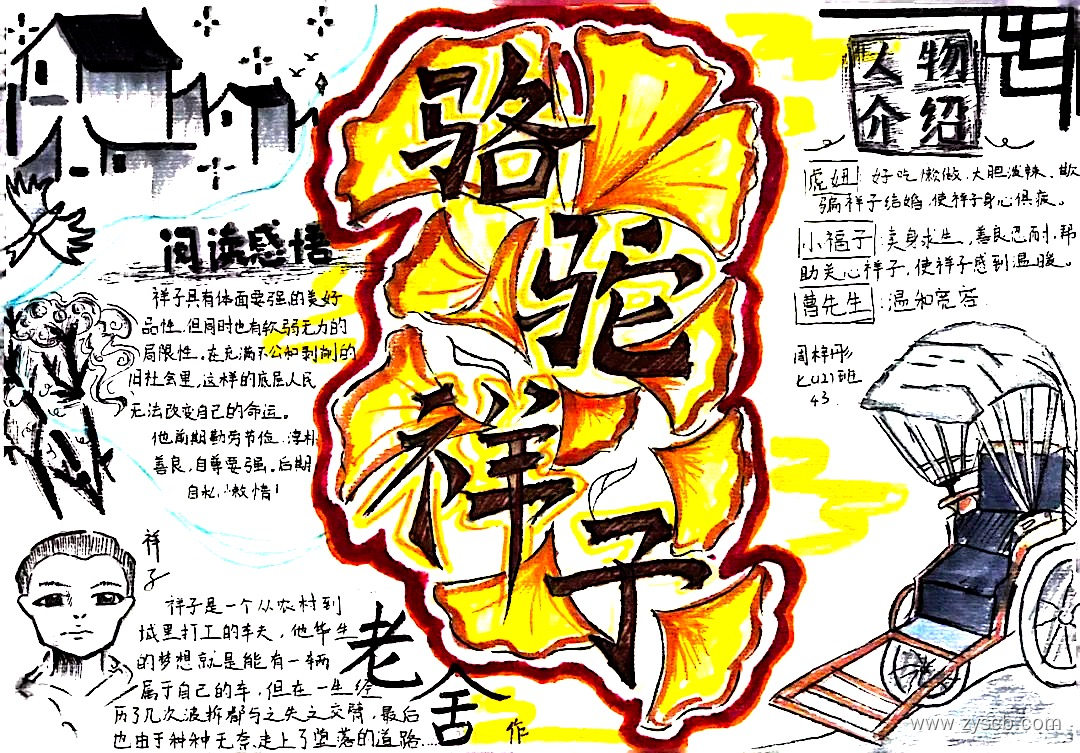 骆驼祥子
老舍
作
阅读感悟
祥子具有体面要强的美好
品性.但同时也有软弱无力的
局限性.在充满不公和剥削的
旧社会里,这样的底层人民
无法改变自己的命运。
他前期勤劳节俭.淳朴
善良,自尊要强.后期
自私,
祥子
祥子是一个从农村到
城里打工的车夫,他毕生
的梦想就是能有一辆
属于自己的车,但在一生经
历了几次波折都与之失之交臂,最后
也由于种种无奈走上了堕落的道路...
人物
介绍
虎妞:好吃懒做.大胆泼辣.欺
骗祥子结婚.使祥子身心俱疲。
小福子:卖身求生,善良忍耐.帮
助关心祥子,使祥子感到温暖。
曹先生:温和宽容.
周梓彤
班
43.
www.zyscb.com